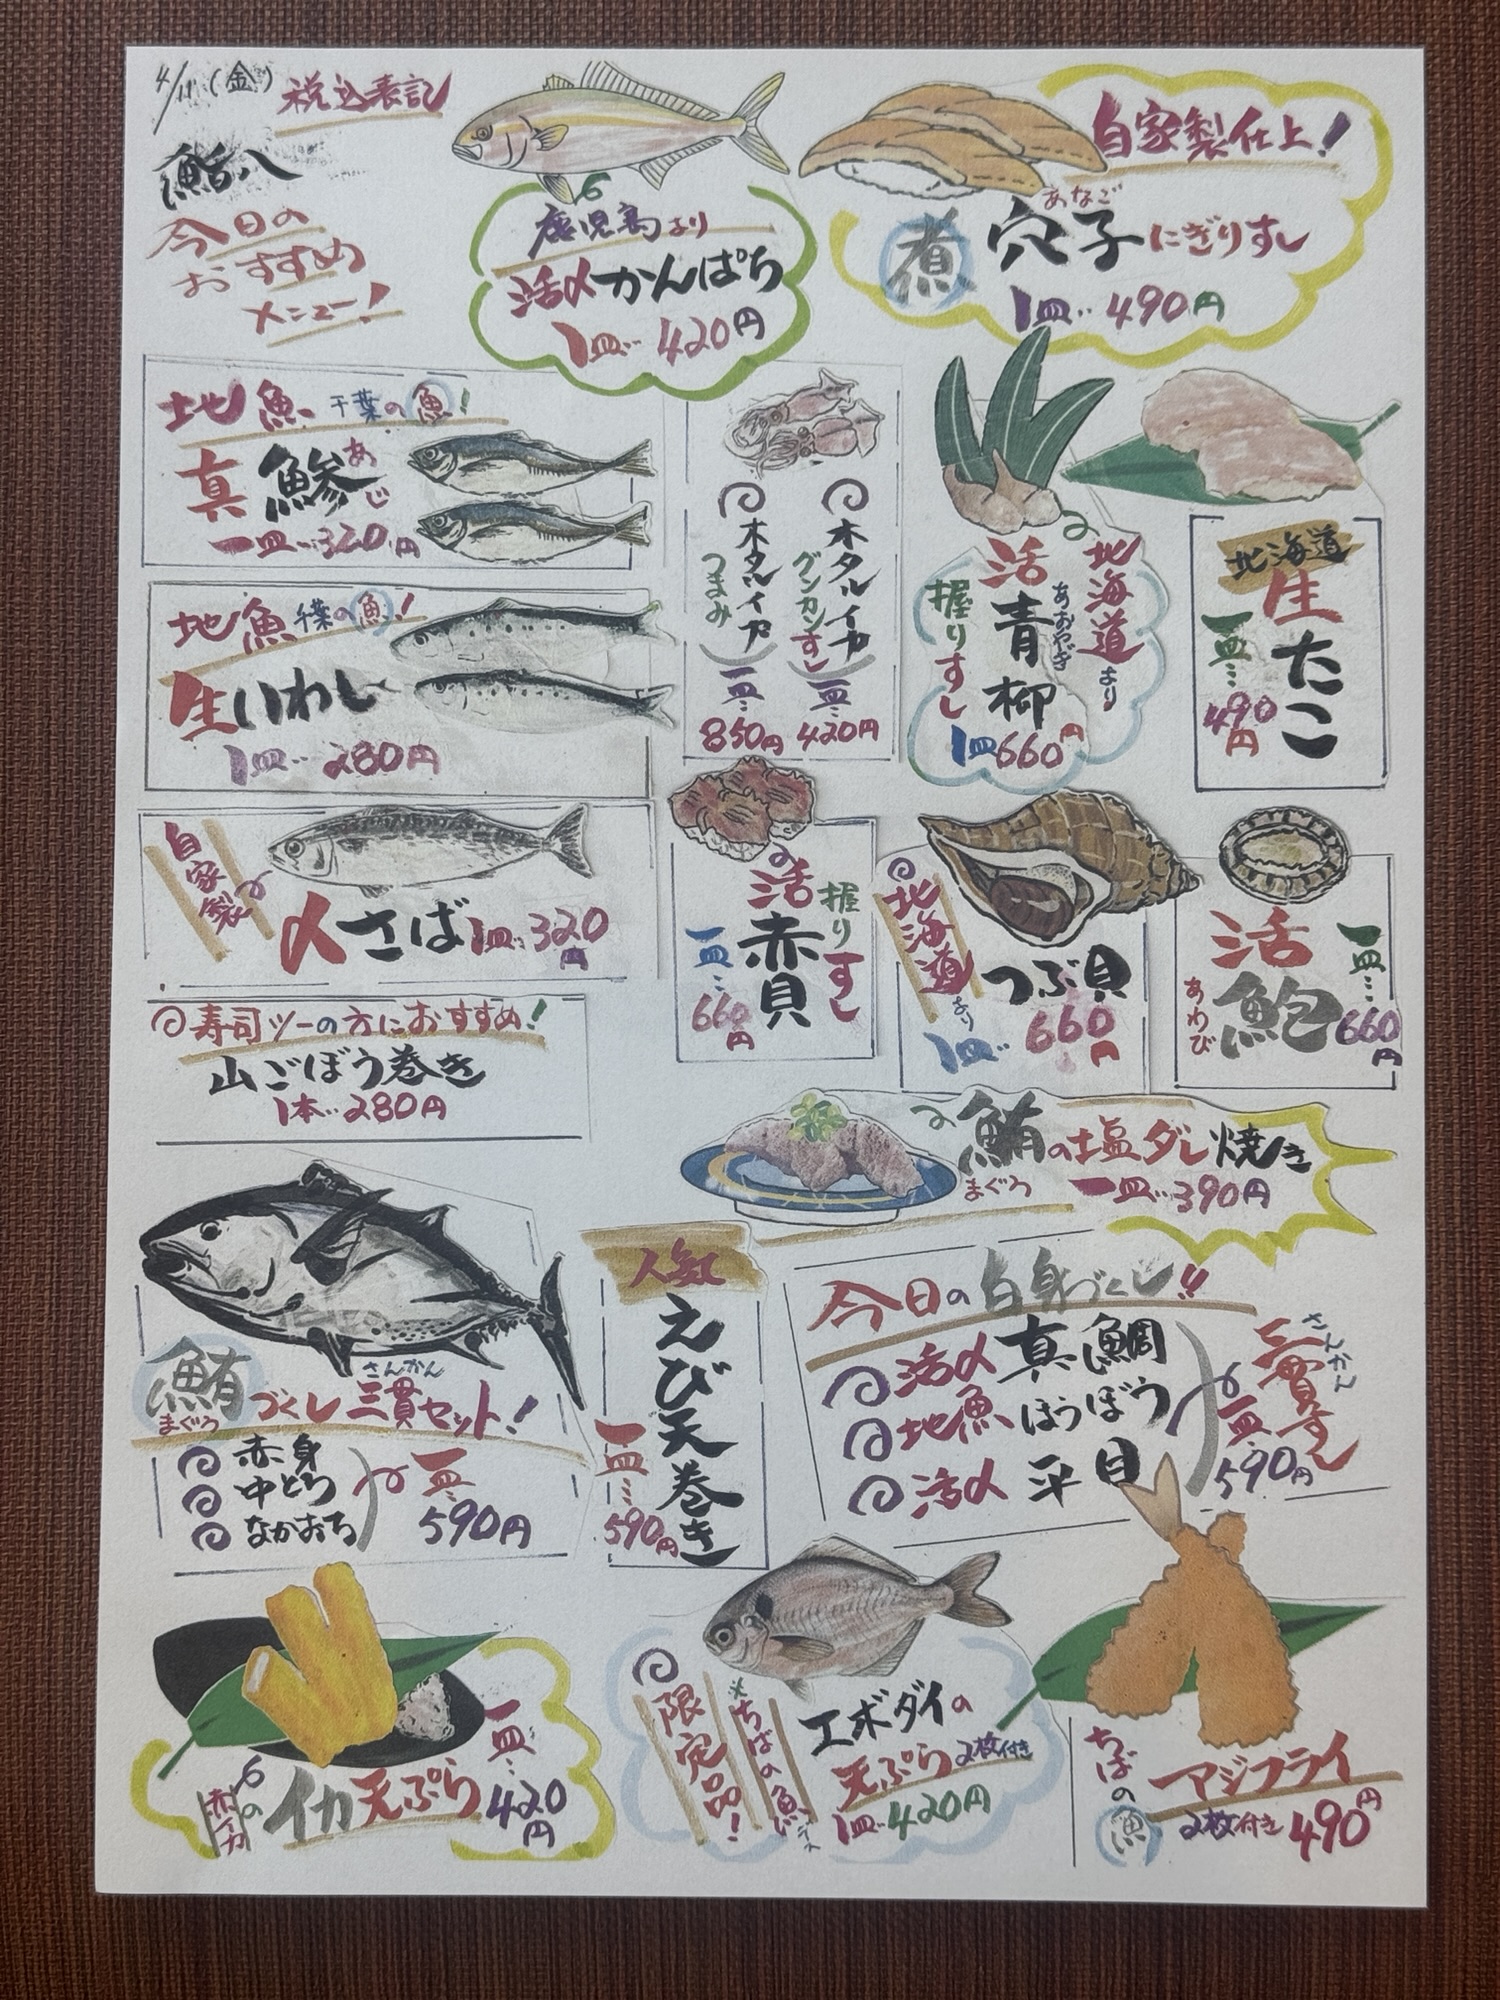 4/11(金)
税込表記
鮨八
今日の
おすすめ
メニュー!
鹿児島より
活〆かんぱち
1皿…420円
自家製仕上!
あなご
煮穴子にぎりすし
1皿…490円
地魚 千葉の魚!
真鯵 あじ
一皿…320円
地魚 千葉の魚!
生いわし
1皿…280円
自家製
〆さば 1皿…320円
寿司ツーの方におすすめ!
山ごぼう巻き
1本…280円
ホタルイカ
グンカンすし
一皿…
420円
ホタルイカ
つまみ
一皿…
850円
北海道より
活青柳
あおやぎ
握りすし
1皿660円
北海道
生たこ
一皿…
490円
活赤貝
握りすし
一皿…
660円
北海道より
つぶ貝
1皿…660円
活鮑
あわび
一皿…
660円
鮪の塩ダレ焼き
まぐろ
一皿…390円
鮪づくし三貫セット!
まぐろ
さんかん
赤身
中とろ
なかおち
一皿…
590円
人気
えび天巻き
一皿…
590円
今日の白身づくし!!
活〆 真鯛
地魚 ほうぼう
活〆 平目
さんかん
三貫すし
一皿
590円
赤イカの
イカ天ぷら
一皿…
420円
限定品!
※ちばの魚
エボダイの
天ぷら 2枚付き
1皿…420円
ちばの魚
アジフライ
2枚付き 490円